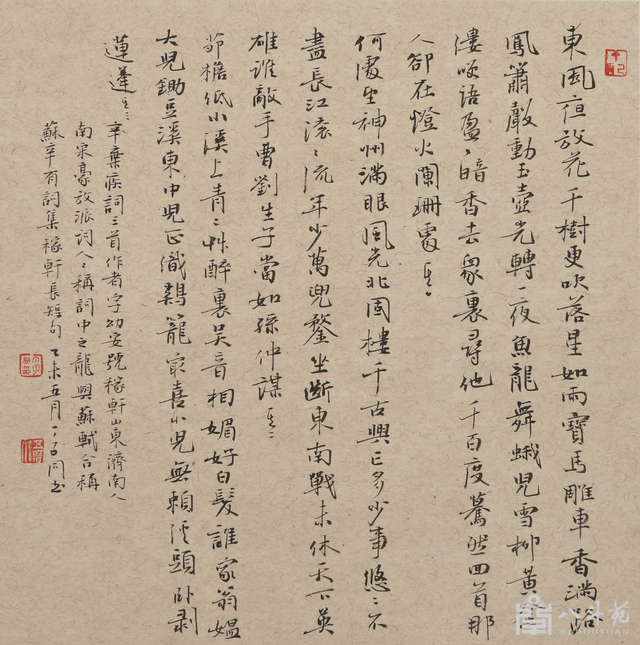 東風夜放花千樹更吹落星如雨寶馬雕車香滿路
鳳簫聲動玉壺光轉一夜魚龍舞蛾兒雪柳黃金
縷笑語盈〻暗香去眾裏尋他千百度驀然回首那
人卻在燈火闌珊處其一
何處望神州滿眼風光北固樓千古興亡多少事悠〻不
盡長江滾〻流年少萬兜鍪坐斷東南戰未休天下英
雄誰敵手曹劉生子當如孫仲謀其二
茆檐低小溪上青〻艸醉裏吳音相媚好白髮誰家翁媼
大兒鋤豆溪東中兒正織鷄籠最喜小兒無賴溪頭臥剥
蓮蓬其三
辛棄疾詞三首作者字幼安號稼軒山東濟南人
南宋豪放派詞人〻稱詞中之龍與蘇軾合稱
蘇辛有詞集稼軒長短句乙未五月丁同書